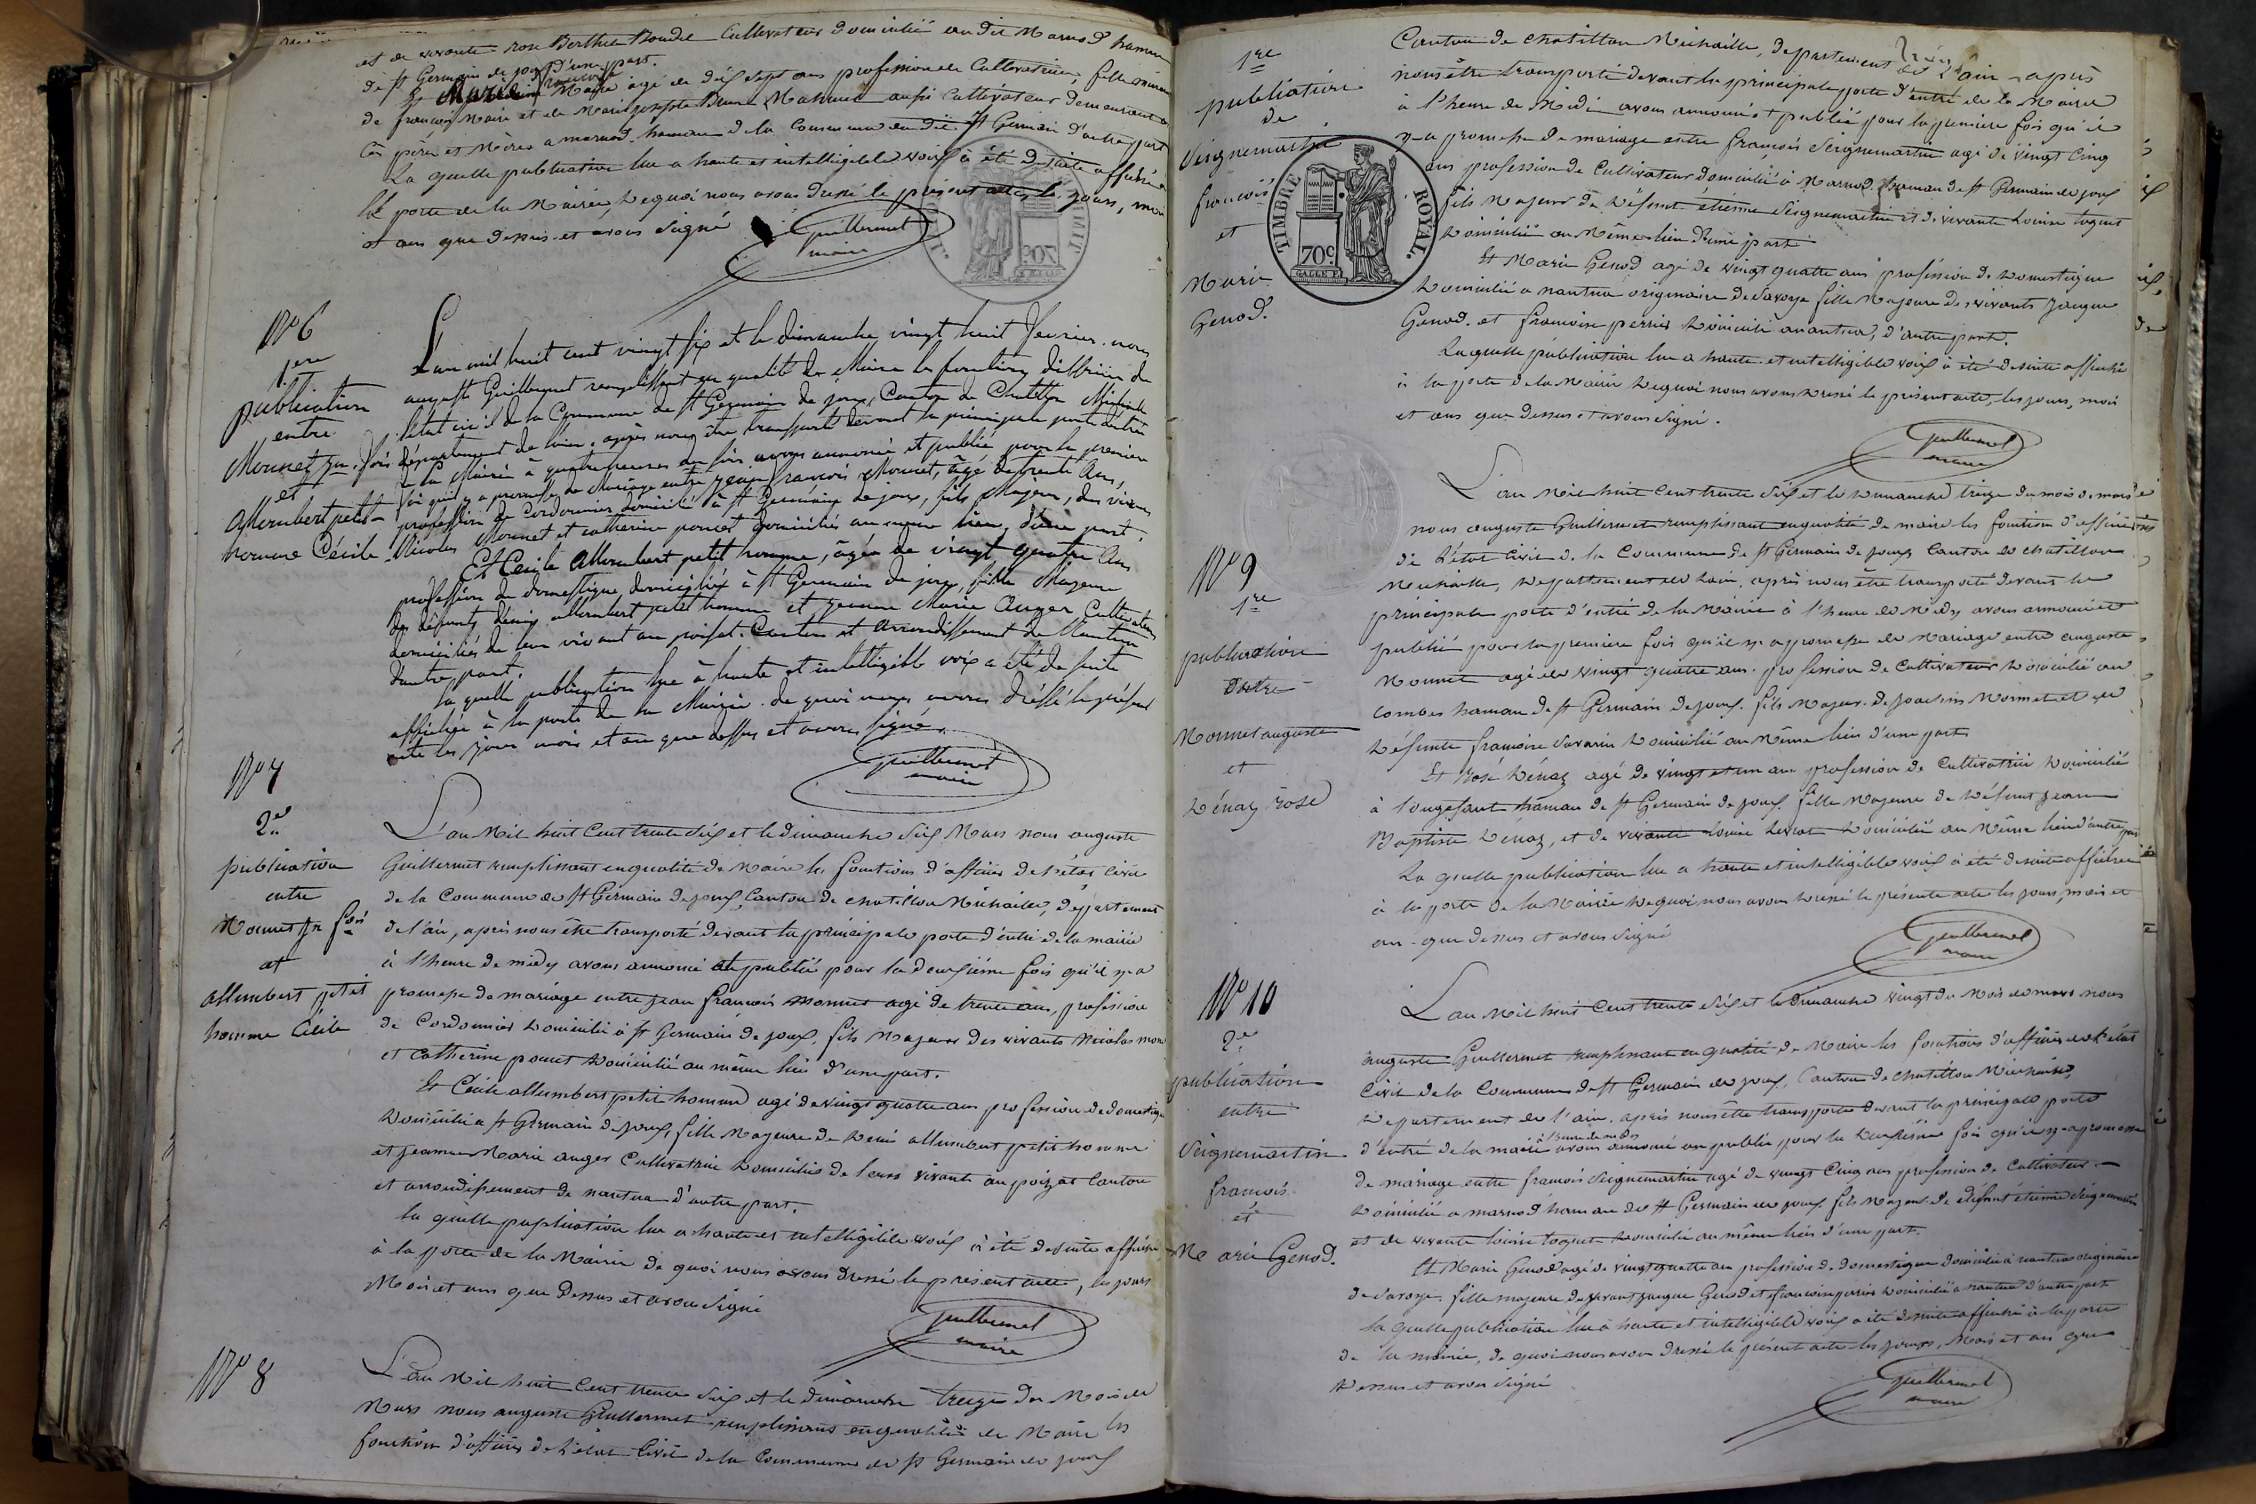 et de vivante rose Berthet Boudé Cultivateur domicilié au dit Marnod hameau
de st Germain de joux d'une part.
Et Marie Maire agé de dix sept ans profession de Cultivatrice fille mineure
de françois Maire et de Marie josephte aussi Cultivateur demeurant
les père et Mère a marnod hameau de la Commune du dit st Germain d'autre part
La quelle publication lue a haute et intelligible voix à été de suite affichée
la porte de la Mairie, de quoi nous avons dressé le présent acte les jours, mois
et ans que dessus et avons Signé
Guillermet
maire
N° 6
1ere
publication
entre
Monnet jn. fois
et
Allembert petit
homme Cécile
L'an mil huit cent vingt six et le dimanche vingt huit fevrier. nous
auguste Guillermet remplissant en qualité de Maire les fonctions d'officier de
l'etat civil de la Commune de St Germain de joux, Canton de Chatillon Michaille
département de l'ain. après nous être transporté devant la principale porte d'entrée
de la Mairie à quatre heures du soir avons annoncé et publié pour la première
fois qu'il y a promesse de Mariage entre jean françois Monnet, âgé de trente Ans,
profession de Cordonnier domicilié à St Germain de joux, fils Majeur, des vivans
Nicolas Monnet et catherine poncet domiciliés au même lieu, d'une part,
Et Cécile Allembert petit homme, âgée de vingt quatre Ans
profession de domestique, domiciliée à St Germain de joux, fille Majeure
des défunts dénis allembert petit homme et jeanne Marie Auger Cultivateurs
domiciliés de leur vivant au poisat. Canton et Arrondissement de Nantua
d'autre part.
la quelle publication lue à haute et intelligible voix a été de suite
affichée à la porte de la Mairie. de quoi nous avons dréssé le présent
acte les jour mois et an que dessus et avons signé.
Guillermet
maire
N° 7
2e
publication
entre
Monnet jn fois
et
allembert petit
homme Cécile
L'an Mil huit Cent trente Six et le dimanche Six Mars nous auguste
Guillermet remplissant en qualité de Maire les fonctions d'officier de l'état Civil
de la Commune de St Germain de joux, Canton de Chatillon Michaille, département
de l'ain, après nous être transporté devant la principale porte d'entré de la mairie
à l'heure de midy avons annoncé et publié pour la deuxième fois qu'il y a
promesse de mariage entre jean françois monnet agé de trente ans, profession
de Cordonnier domicilié à st Germain de joux, fils Majeur des vivants Nicolas mon
et Catherine poncet domicilié au même lieu d'une part.
Et Cécile allembert petit homme agé de vingt quatre ans profession de domestique
domicilié a st Germain de joux, fille Majeure de Denis allembert petit homme
et jeanne Marie auger Cultivatrice domiciliés de leurs vivants au poizat Canton
et arrondissement de nantua d'autre part.
la quelle publication lue a haute et intelligible voix à été de suite affichée
à la porte de la Mairie de quoi nous avons dressé le présent acte, les jours
Mois et ans que Dessus et avons Signé
Guillermet
maire
N° 8
L'an Mil huit Cent trente Six et le dimanche treize du Mois de
Mars nous auguste Guillermet remplissant en qualité de Maire les
fonction d'officier de l'état Civil de la Commune de st Germain de joux
1re
publication
de
Seignemartin
françois
et
Marie
Genod.
TIMBRE ROYAL.
70c.
Canton de Chatillon Michaille, departement de l'ain apres
nous être transporté devant la principale porte d'entré de la Mairie
à l'heure de Midi avons annoncé et publié pour la premiere fois qu'il
y a promesse de mariage entre françois Seignemartin agé de vingt Cinq
ans profession de Cultivateur domicilié à Marnod hameau de st Germain de joux
fils Majeur de défunt étienne Seignemartin et de vivante Louise toguet
domicilié au Même lieu d'une part
Et Marie Genod agé de vingt quatre ans profession de domestique
domicilié a nantua originaire de Savoye fille Majeure des vivants jacque
Genod. et françoise perrier domicilié a nantua, d'autre part.
La quelle publication lue a haute et intelligible voix à été de suite affiché
à la porte de la Mairie de quoi nous avons dressé le présent acte, les jours, mois
et ans que dessus et avons signé.
Guillermet
maire
N° 9
1re
publication
entre
Monnet auguste
et
Dénaz rose
L'an Mil huit Cent trente Six et le dimanche treize du mois de mars
nous auguste Guillermet remplissant en qualité de maire les fonction d'officier
de l'état Civil de la Commune de st Germain de joux Canton de chatillon
Michaille, departement de l'ain, après nous être transporté devant la
principale porte d'entré de la Mairie à l'heure de Midy avons annoncé et
publié pour la premiere fois qu'il y a promesse de Mariage entre auguste
Monnet agé de vingt quatre ans. profession de Cultivateur domicilié au
Combes hameau de st Germain de joux. fils Majeur de joachim Monnet et de
défunte françoise Savarin domicilié au Même lieu d'une part
Et rose Dénaz agé de vingt et un ans profession de Cultivatrice domicilié
à longefant hameau de st Germain de joux fille Majeure de défunt jean
Baptiste Dénaz, et de vivante domicilié au Même lieu d'autre part
La quelle publication lue a haute et intelligible voix à été de suite affichée
à la porte de la Mairie de quoi nous avons dressé le présente acte les jours, mois et
an que dessus et avons signé
Guillermet
maire
N° 10
2e
publication
entre
Seignemartin
francois
et
Marie Genod.
L'an Mil huit Cent trente Six et le dimanche vingt du Mois de mars nous
auguste Guillermet remplissant en qualité de Maire les fonctions d'officier de l'état
Civil de la Commune de st Germain de joux, Canton de Chatillon Michaille,
departement de l'ain. après nous être transporté devant la principale porte
d'entré de la mairie à l'heure de midi avons annoncé ou publié pour la deuxième fois qu'il y a promesse
de mariage entre francois Seignemartin agé de vingt Cinq ans profession de Cultivateur
domicilié a marnod hameau de st Germain de joux fils Majeur de défunt étienne Seignemartin
et de vivante louise toguet domicilié au même lieu d'une part.
Et Marie Genod agé de vingt quatre ans profession de domestique domicilié à nantua originaire
de Savoye. fille majeure de vivant jacque Genod et francoise perrier domicilié a nantua d'autre part
la quelle publication lue à haute et intelligible voix a été de suite affiché à la porte
de la mairie, de quoi nous avons dressé le présent acte les jours, Mois et an que
dessus et avons signé
Guillermet
maire